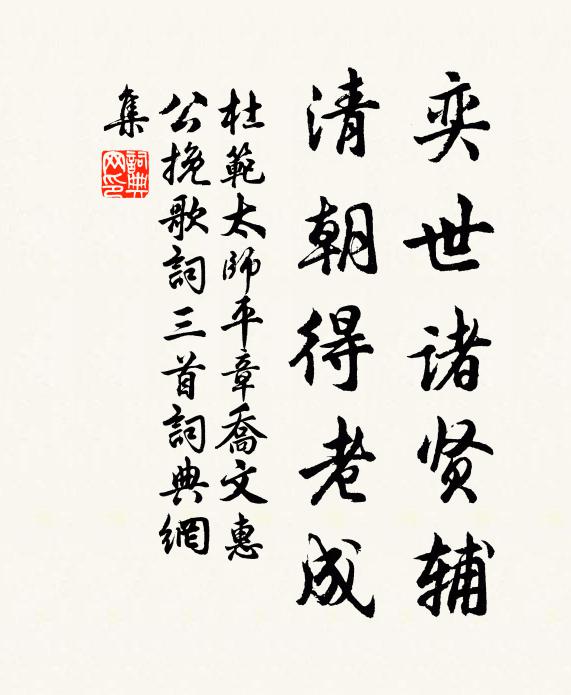 奕世诸贤辅
清朝得老成
杜範太師平章喬文惠
公挽歌詞三首詞典網
集
詞典網印